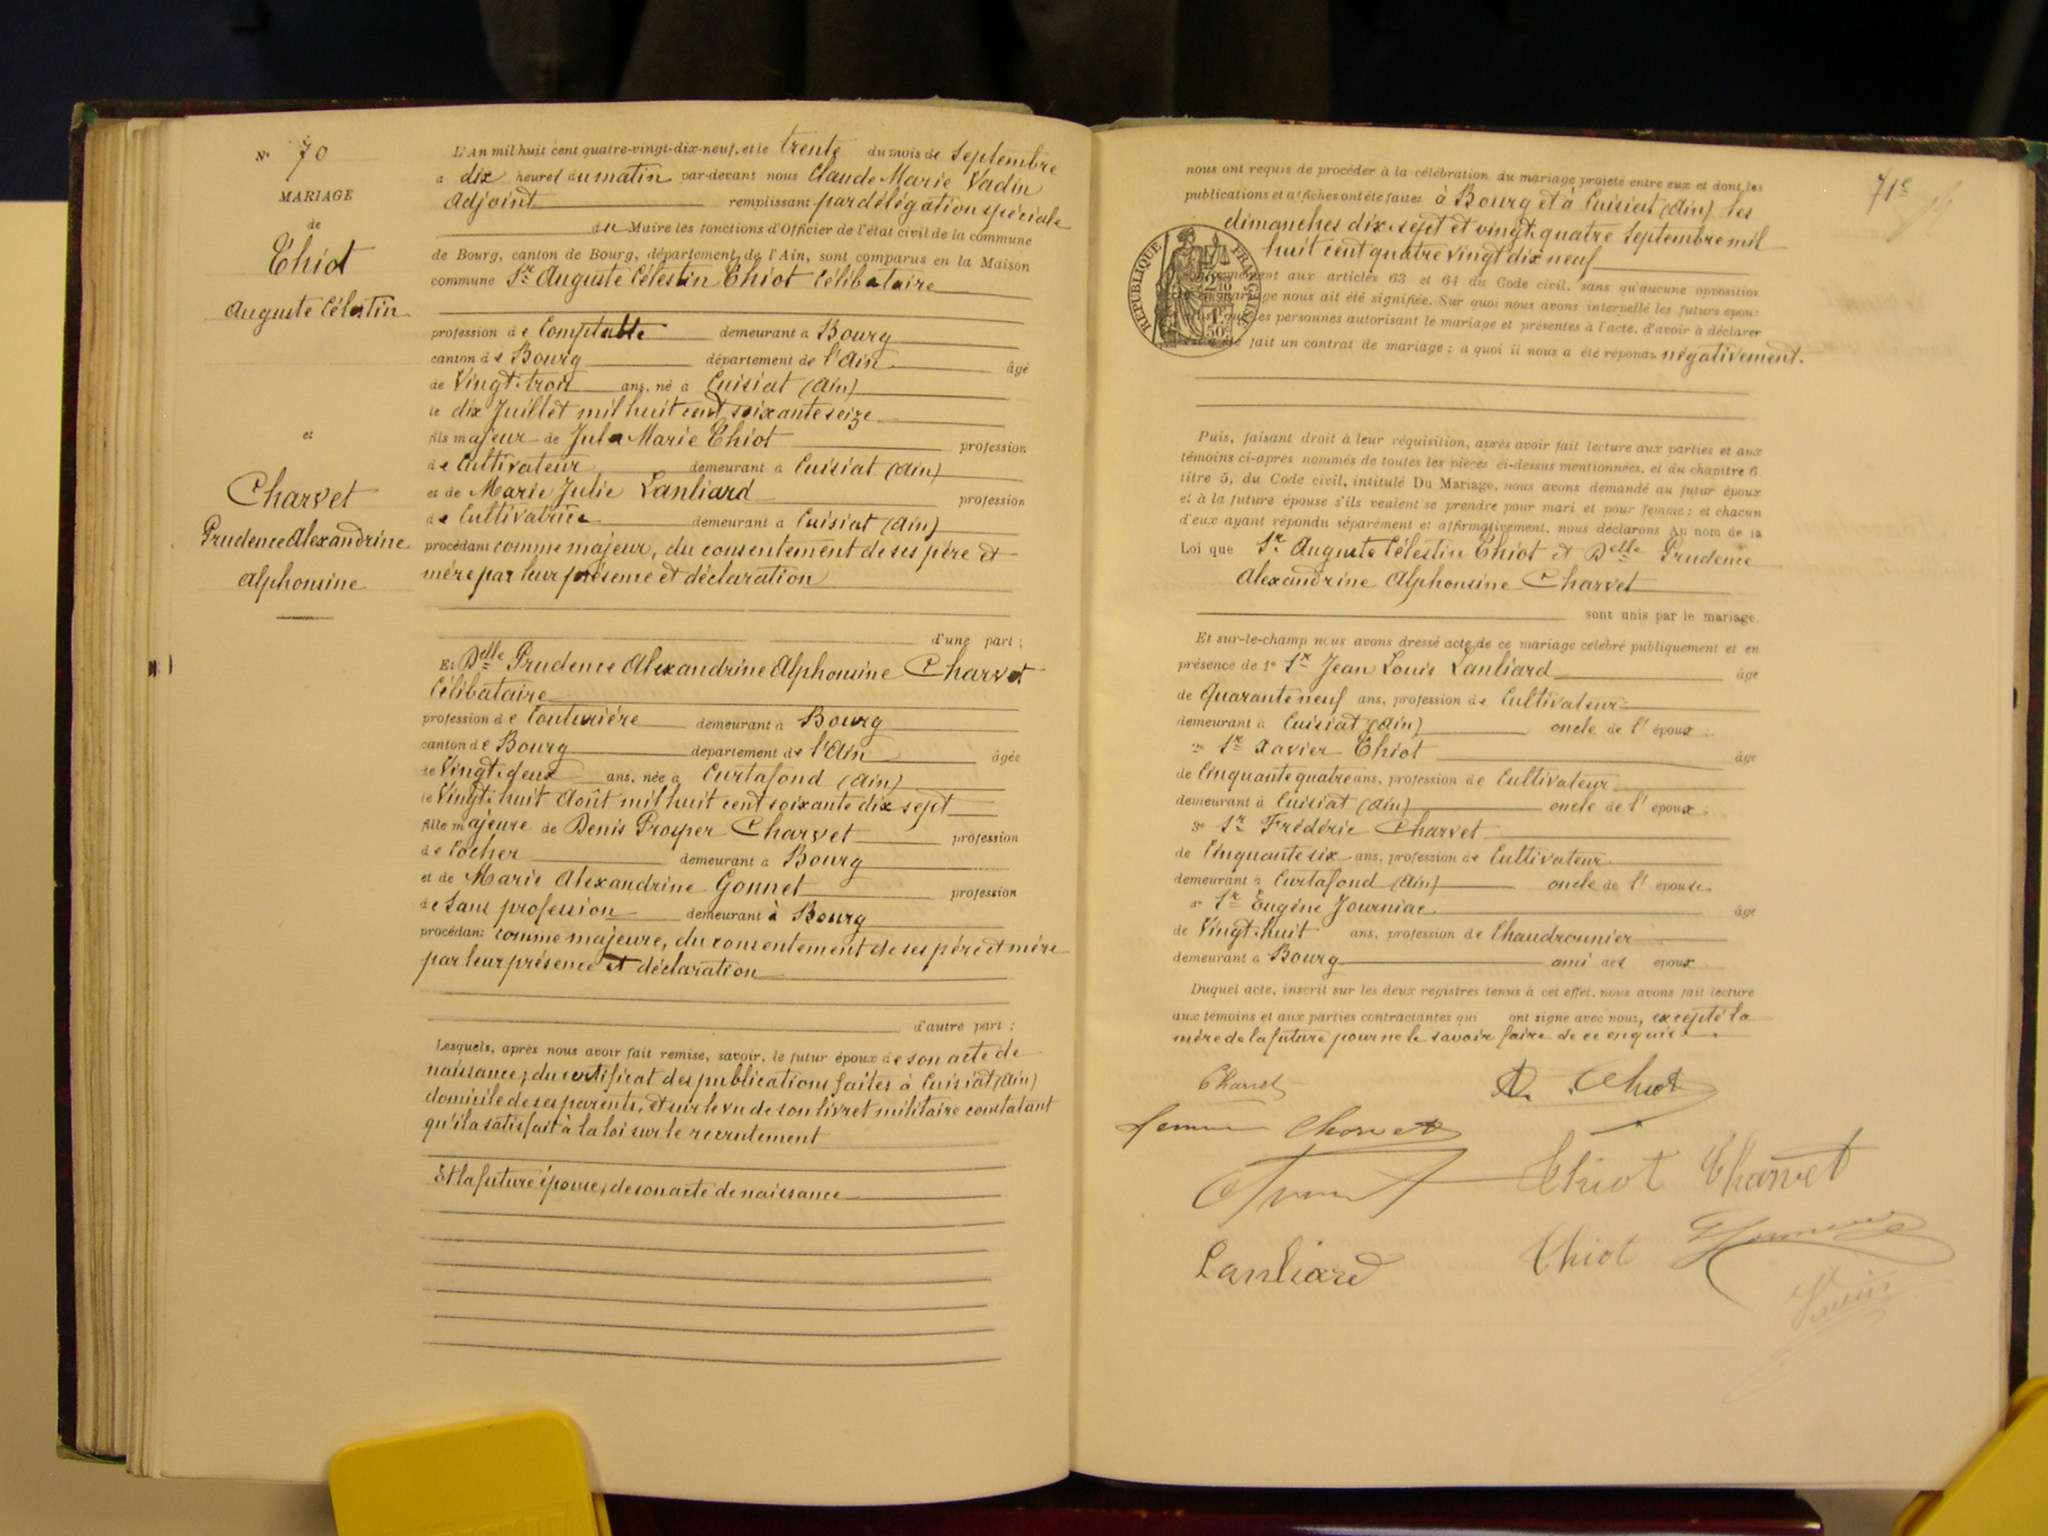 N° 70
MARIAGE
de
Thiot
Auguste Célestin
et
Charvet
Prudence Alexandrine
Alphonsine
L'An mil huit cent quatre-vingt-dix-neuf, et le trente du mois de Septembre
a dix heures du matin par-devant nous Claude Marie Vadin
Adjoint remplissant par délégation spéciale
du Maire les fonctions d'Officier de l'état civil de la commune
de Bourg, canton de Bourg, département de l'Ain, sont comparus en la Maison
commune Sr Auguste Célestin Thiot Célibataire
profession de Comptable demeurant à Bourg
canton de Bourg département de l'Ain âgé
de Vingt-trois ans, né à Cuisiat (Ain)
le dix Juillet mil huit cent soixante seize
fils majeur de Jules Marie Thiot profession
de Cultivateur demeurant à Cuisiat (Ain)
et de Marie Julie Lanliard profession
de Cultivatrice demeurant à Cuisiat (Ain)
procédant comme majeur, du consentement de ses père et
mère par leur présence et déclaration
d'une part ;
Et Delle Prudence Alexandrine Alphonsine Charvet
Célibataire
profession de Couturière demeurant à Bourg
canton de Bourg département de l'Ain âgée
de Vingt-deux ans, née à Curtafond (Ain)
le Vingt-huit Août mil huit cent soixante dix sept
fille majeure de Denis Prosper Charvet profession
de Cocher demeurant à Bourg
et de Marie Alexandrine Gonnet profession
de Sans profession demeurant à Bourg
procédant comme majeure, du consentement de ses père et mère
par leur présence et déclaration
d'autre part ;
Lesquels, après nous avoir fait remise, savoir, le futur époux de son acte de
naissance ; du certificat des publications faites à Cuisiat (Ain)
domicile de ses parents, et sur le vu de son livret militaire constatant
qu'il a satisfait à la loi sur le recrutement
Et la future épouse, de son acte de naissance
71e
nous ont requis de procéder à la célébration du mariage projeté entre eux et dont les
publications et affiches ont été faites à Bourg et à Cuisiat (Ain) les
dimanches dix-sept et vingt-quatre Septembre mil
huit cent quatre vingt dix neuf
RÉPUBLIQUE FRANÇAISE
aux articles 63 et 64 du Code civil, sans qu'aucune opposition
mariage nous ait été signifiée. Sur quoi nous avons interpellé les futurs époux
que les personnes autorisant le mariage et présentes à l'acte, d'avoir à déclarer
fait un contrat de mariage ; a quoi il nous a été répondu négativement.
Puis, faisant droit à leur réquisition, après avoir fait lecture aux parties et aux
témoins ci-après nommés de toutes les pièces ci-dessus mentionnées, et du chapitre 6,
titre 5, du Code civil, intitulé Du Mariage, nous avons demandé au futur époux
et à la future épouse s'ils veulent se prendre pour mari et pour femme ; et chacun
d'eux ayant répondu séparément et affirmativement, nous déclarons Au nom de la
Loi que Sr Auguste Célestin Thiot et Delle Prudence
Alexandrine Alphonsine Charvet
sont unis par le mariage.
Et sur-le-champ nous avons dressé acte de ce mariage célébré publiquement et en
présence de 1° Sr Jean Louis Lanliard âgé
de Quarante neuf ans, profession de Cultivateur
demeurant à Cuisiat (Ain) oncle de l'époux ;
2° Sr Xavier Thiot âgé
de Cinquante quatre ans, profession de Cultivateur
demeurant à Cuisiat (Ain) oncle de l'époux
3° Sr Frédéric Charvet
de Cinquante six ans, profession de Cultivateur
demeurant à Curtafond (Ain) oncle de l'épouse
4° Sr Eugène Journiac âgé
de Vingt-huit ans, profession de Chaudronnier
demeurant à Bourg ami des époux
Duquel acte, inscrit sur les deux registres tenus à cet effet, nous avons fait lecture
aux témoins et aux parties contractantes qui ont signé avec nous, excepté la
mère de la future pour ne le savoir faire de ce enquise.
Charvet
A. Thiot
Charvet
Thiot Charvet
Lanliard
Thiot